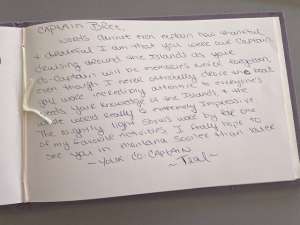 CAPTAIN Bree,
Words cannot even explain how thankful
+ grateful I am that you were our Captain
cruising around the Islands as your
Co-Captain will be memories never forgotten
even though I never officially drove the boat
you were incredibly attentive to everyone's
needs your knowledge of the Islands + the
world is extremely Impressive
The nightly light shows were by far one
of my favorite activities I finally hope to
see you in mainland sooner than later
~ Your CO-CAPTAIN
~